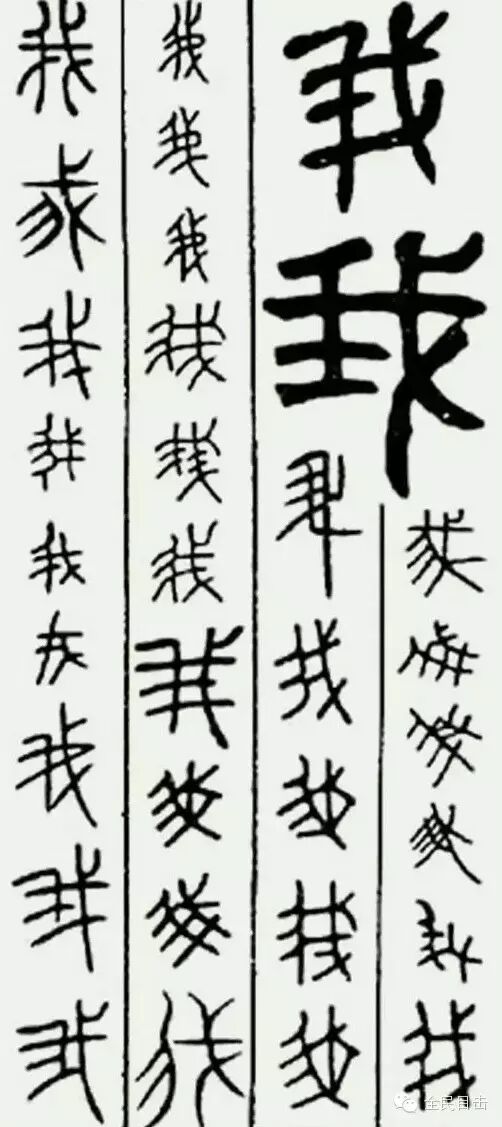 我我
我我我我我我
我我我我我
我我我我我我我我我我
我我我我我我我我我
全民目击